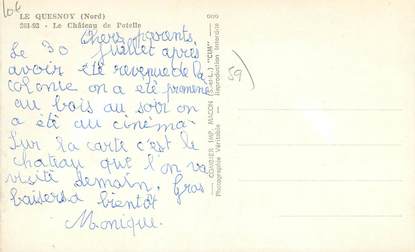 LE QUESNOY (Nord)
261-92 - Le Château de Potelle
Chers parents,
Le 30 juillet après
avoir été revenue de la
colonie on a été promené
au bois au soir on
a été au cinéma.
Sur la carte c'est le
chateau que l'on va
visité demain. Gros
baisers a bientôt
Monique.
COMBIER IMP. MACON (S.-et-L.) "CIM"
Photographie Véritable - Reproduction Interdite
59